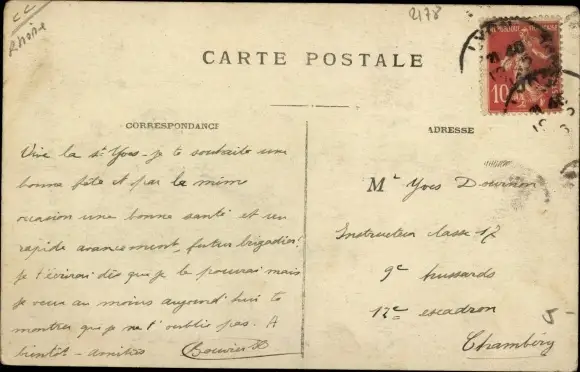 CC
Rhône
2178
CARTE POSTALE
LYON
10
CORRESPONDANCE
Vive la St Yves - je te souhaite une
bonne fête et par la mim
occasion une bonne santé et un
rapide avancement, futur brigadier!
Je t'écrirai dès que je le pourrai mais
je veux au moins aujourd'hui te
montrer que je ne t'oublie pas. A
bientôt - amitiés Bouvier
ADRESSE
Mr Yves Dournon
Instructeur classe 17
9e hussards
12e escadron
Chambéry
5-